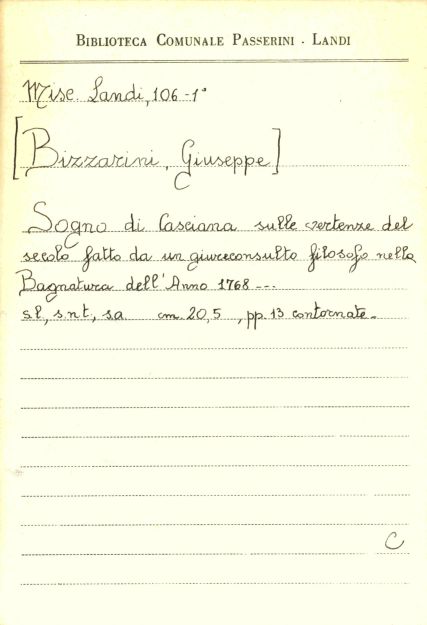 BIBLIOTECA COMUNALE PASSERINI - LANDI
Misc. Landi, 106-1°
[Bizzarini, Giuseppe]
Sogno di Casciana sulle vertenze del
secolo fatto da un giureconsulto filosofo nella
Bagnatura dell'Anno 1768 ---
s.l., s.n.t., s.a. cm. 20,5, pp. 13 contornate.
C